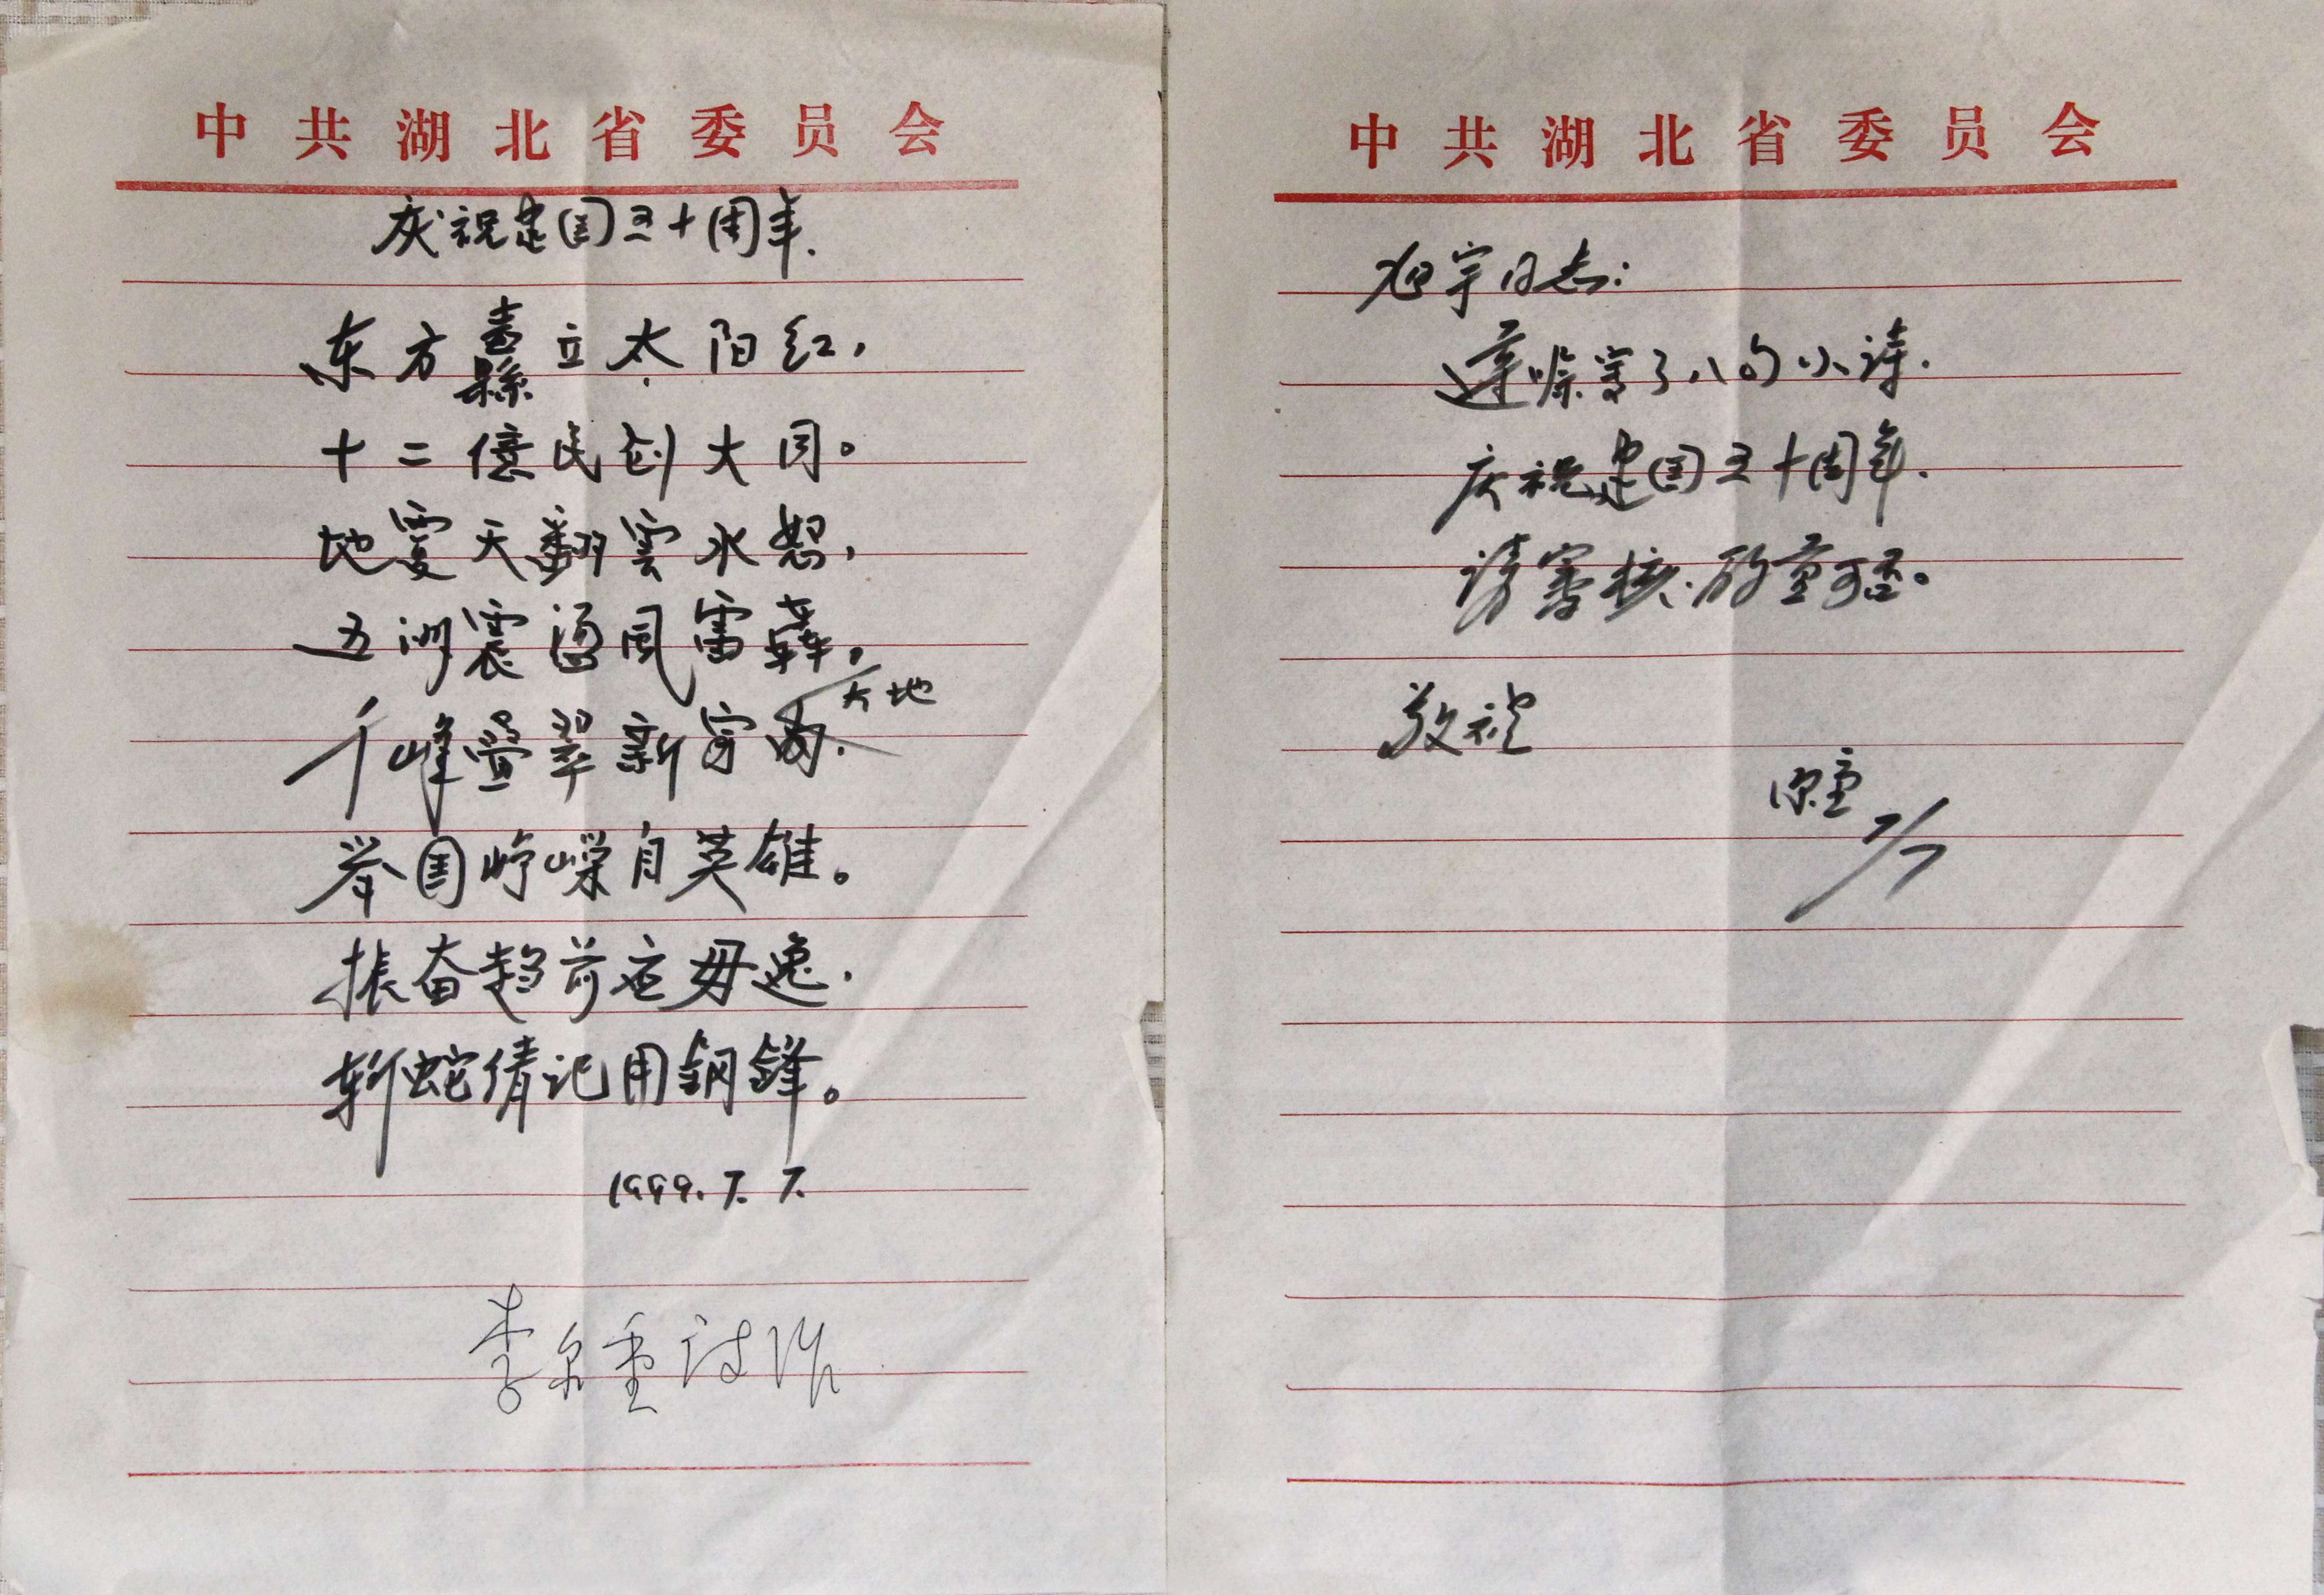 中共湖北省委员会
庆祝建国五十周年.
东方矗立太阳红,
十二億民创大同。
地覆天翻雲水怒,
五洲震盪风雷轰。
大地
千峰叠翠新宇
举国峥嵘自英雄。
振奋趋前应毋逸.
斬蛇倩记用鋼鋒。
1999.7.7.
李尔重诗作
中共湖北省委员会
旭宇同志:
遵嘱写了八句小诗.
庆祝建国五十周年.
请审核.
可否。
敬礼
尔重
7/7